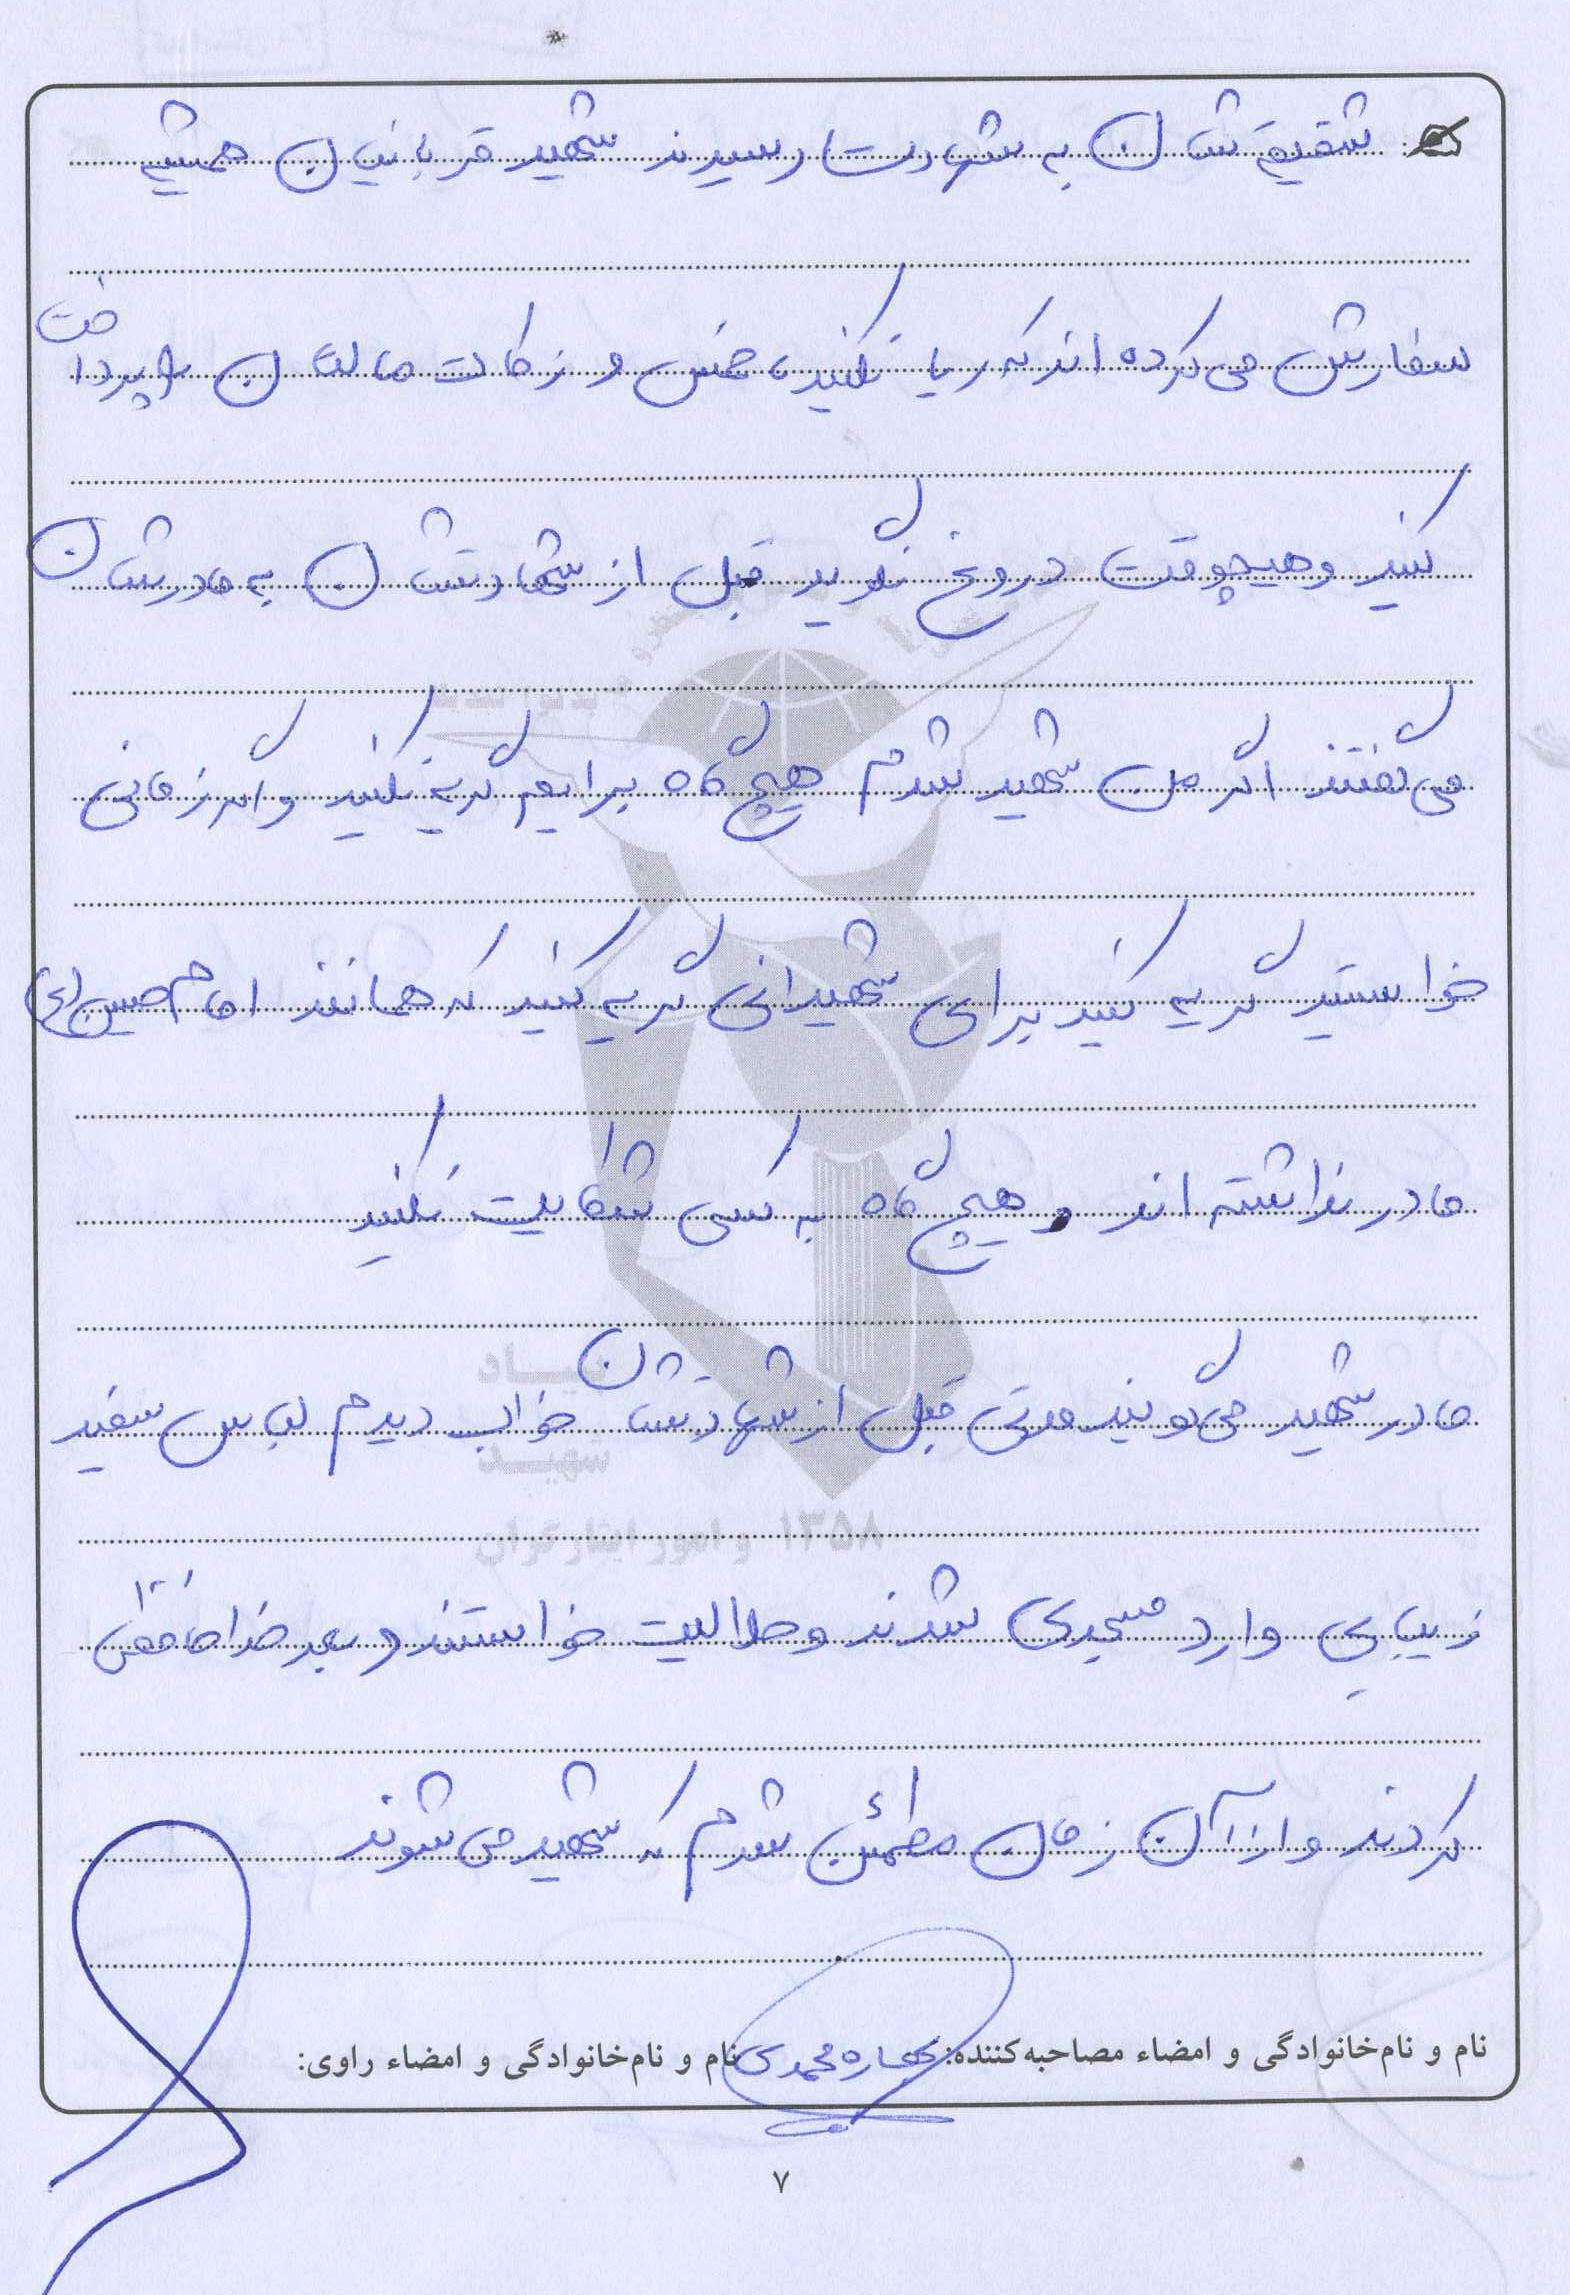 شقیقه شان به شهادت رسیدند شهید قربانیان همیشه
سفارش می کرده اند که ریا نکنید، خمس و زکات مالتان را پرداخت
کنید و هیچوقت دروغ نگویید قبل از شهادتشان به مادرشان
می گفتند اگر من شهید شدم هیچ گاه برایم گریه نکنید و اگر زمانی
خواستید گریه کنید برای شهیدانی گریه کنید که همانند امام حسین (ع)
مادر نداشته اند و هیچ گاه به کسی شکایت نکنید
مادر شهید می گویند مدتی قبل از شهادتشان خواب دیدم لباس سفید
زیبایی وارد مسجدی شدند و حلالیت خواستند و بعد خداحافظی
کردند و از آن زمان مطمئن شدم که شهید می شوند
نام و نام‌خانوادگی و امضاء مصاحبه‌کننده: محمدی نام و نام‌خانوادگی و امضاء راوی:
۷
بنیاد
شهید
و امور ایثارگران ۱۳۵۸